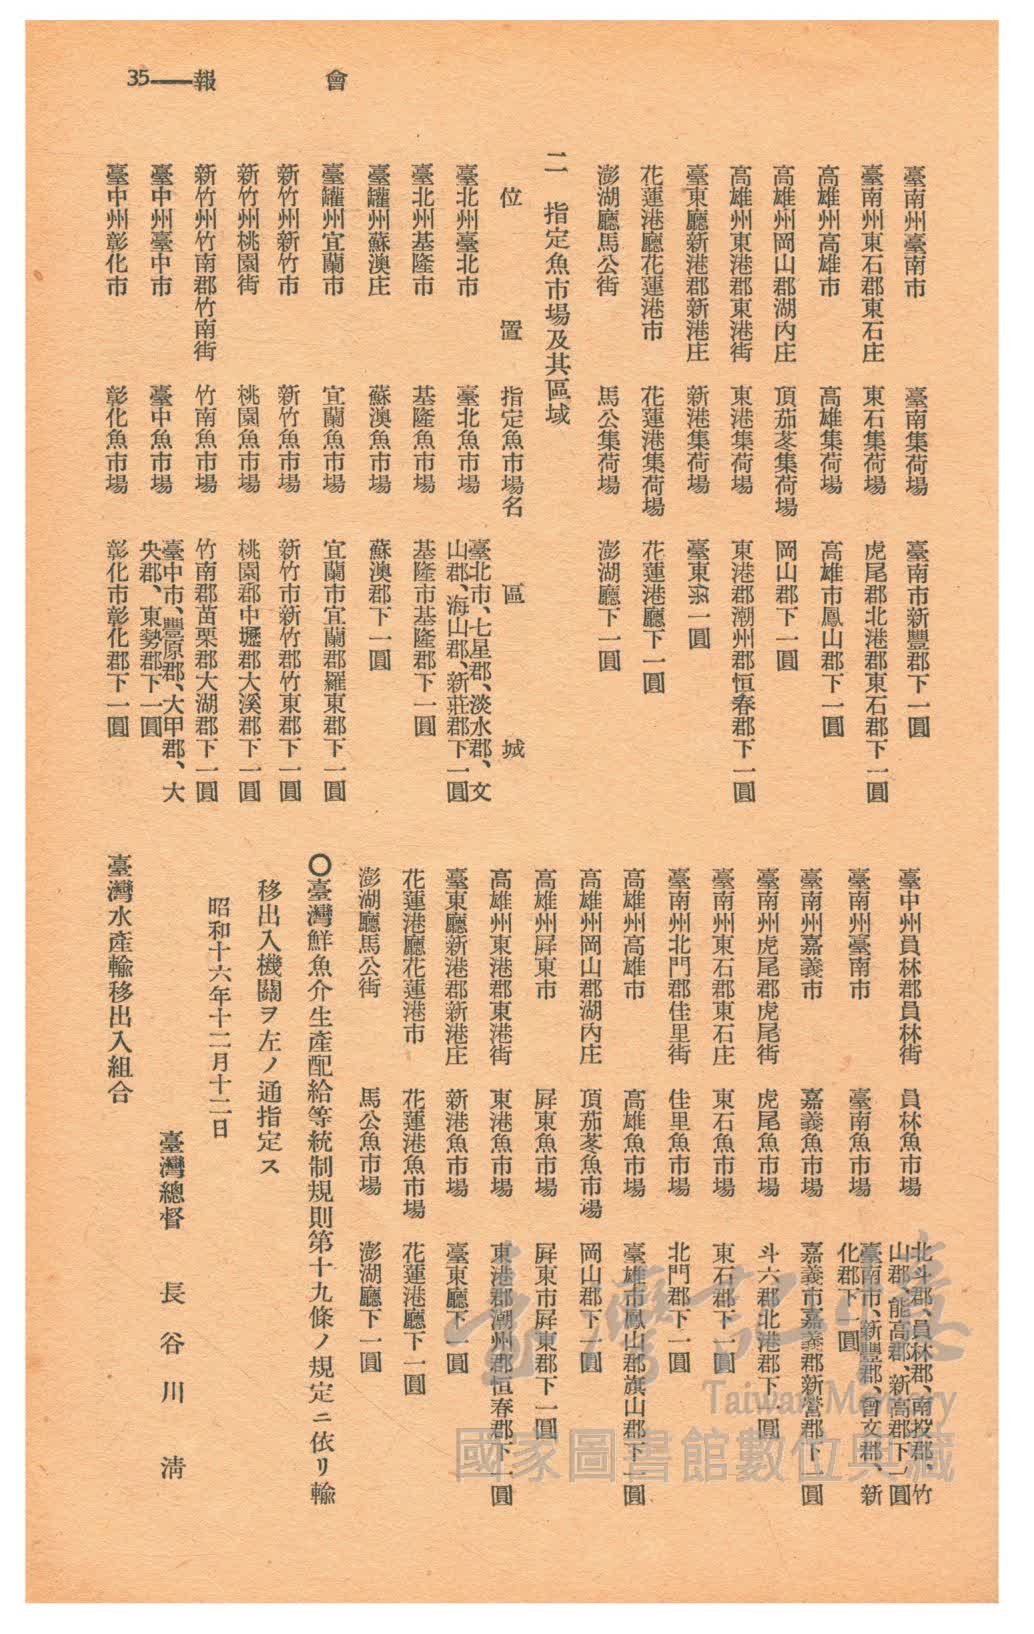 會報——35
臺南州臺南市 臺南集荷場 臺南市新豐郡下一圓
臺南州東石郡東石庄 東石集荷場 虎尾郡北港郡東石郡下一圓
高雄州高雄市 高雄集荷場 高雄市鳳山郡下一圓
高雄州岡山郡湖內庄 頂茄萣集荷場 岡山郡下一圓
高雄州東港郡東港街 東港集荷場 東港郡潮州郡恒春郡下一圓
臺東廳新港郡新港庄 新港集荷場 臺東廳一圓
花蓮港廳花蓮港市 花蓮港集荷場 花蓮港廳下一圓
澎湖廳馬公街 馬公集荷場 澎湖廳下一圓
二 指定魚市場及其區域
位置 指定魚市場名 區域
臺北州臺北市 臺北魚市場 臺北市、七星郡、淡水郡、文
山郡、海山郡、新莊郡下一圓
臺北州基隆市 基隆魚市場 基隆市基隆郡下一圓
臺罐州蘇澳庄 蘇澳魚市場 蘇澳郡下一圓
臺罐州宜蘭市 宜蘭魚市場 宜蘭市宜蘭郡羅東郡下一圓
新竹州新竹市 新竹魚市場 新竹市新竹郡竹東郡下一圓
新竹州桃園街 桃園魚市場 桃園郡中壢郡大溪郡下一圓
新竹州竹南郡竹南街 竹南魚市場 竹南郡苗栗郡大湖郡下一圓
臺中州臺中市 臺中魚市場 臺中市、豐原郡、大甲郡、大
央郡、東勢郡下一圓
臺中州彰化市 彰化魚市場 彰化市彰化郡下一圓
臺中州員林郡員林街 員林魚市場 北斗郡、員林郡、南投郡、竹
山郡、能高郡、新高郡下一圓
臺南州臺南市 臺南魚市場 臺南市、新豐郡、會文郡、新
化郡下一圓
臺南州嘉義市 嘉義魚市場 嘉義市嘉義郡新營郡下一圓
臺南州虎尾郡虎尾街 虎尾魚市場 斗六郡北港郡下一圓
臺南州東石郡東石庄 東石魚市場 東石郡下一圓
臺南州北門郡佳里街 佳里魚市場 北門郡下一圓
高雄州高雄市 高雄魚市場 臺雄市鳳山郡旗山郡下一圓
高雄州岡山郡湖內庄 頂茄萣魚市場 岡山郡下一圓
高雄州屛東市 屛東魚市場 屛東市屛東郡下一圓
高雄州東港郡東港街 東港魚市場 東港郡潮州郡恒春郡下一圓
臺東廳新港郡新港庄 新港魚市場 臺東廳下一圓
花蓮港廳花蓮港市 花蓮港魚市場 花蓮港廳下一圓
澎湖廳馬公街 馬公魚市場 澎湖廳下一圓
〇臺灣鮮魚介生產配給等統制規則第十九條ノ規定ニ依リ輸
移出入機關ヲ左ノ通指定ス
昭和十六年十二月十二日
臺灣總督 長谷川淸
臺灣水產輸移出入組合
臺灣記憶
Taiwan Memory
國家圖書館數位典藏